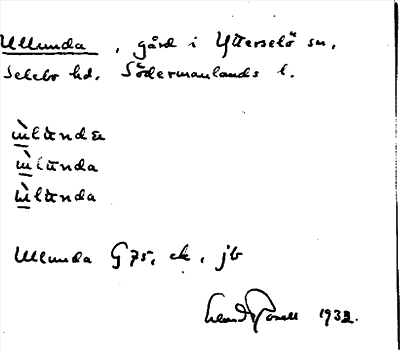 Ullunda, gård i Ytterselö sn,
Selebo hd. Södermanlands l.
ùlunda
ùlunda
ùlunda
Ullunda G 75, ek, jb
1932.